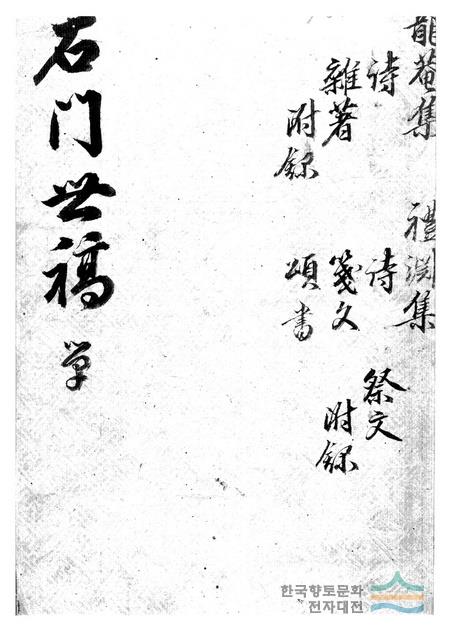 菴集 禮渕集
詩 詩 祭文
雜著 箋文 附錄
附錄 頌 書
石門世稿 单
한국향토문화
전자대전